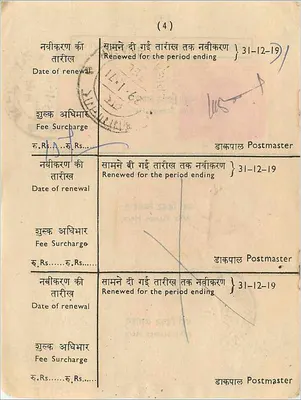 ( 4 )
नवीकरण की सामने दी गई तारीख तक नवीकरण } 31-12-19
तारीख Renewed for the period ending
Date of renewal
शुल्क अधिभार
Fee Surcharge
रु.Rs.....रु.Rs..... डाकपाल Postmaster
नवीकरण की सामने दी गई तारीख तक नवीकरण } 31-12-19
तारीख Renewed for the period ending
Date of renewal
शुल्क अधिभार
Fee Surcharge
रु.Rs......रु.Rs..... डाकपाल Postmaster
नवीकरण की सामने दी गई तारीख तक नवीकरण } 31-12-19
तारीख Renewed for the period ending
Date of renewal
शुल्क अधिभार
Fee Surcharge
रु.Rs......रु.Rs..... डाकपाल Postmaster